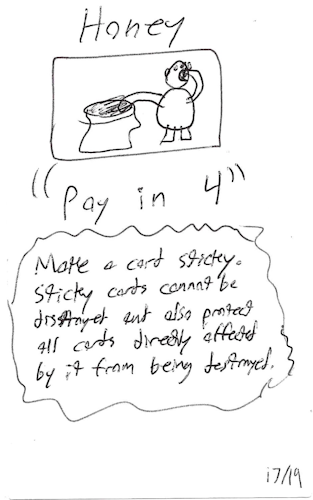 Honey
"Pay in 4"
Make a card stickey.
Stickey cards cannot be
disstroyed but also protect
all cards directly affected
by it from being destroyed.
17/19